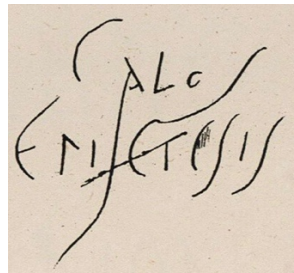 CALOS
EPICTESIS